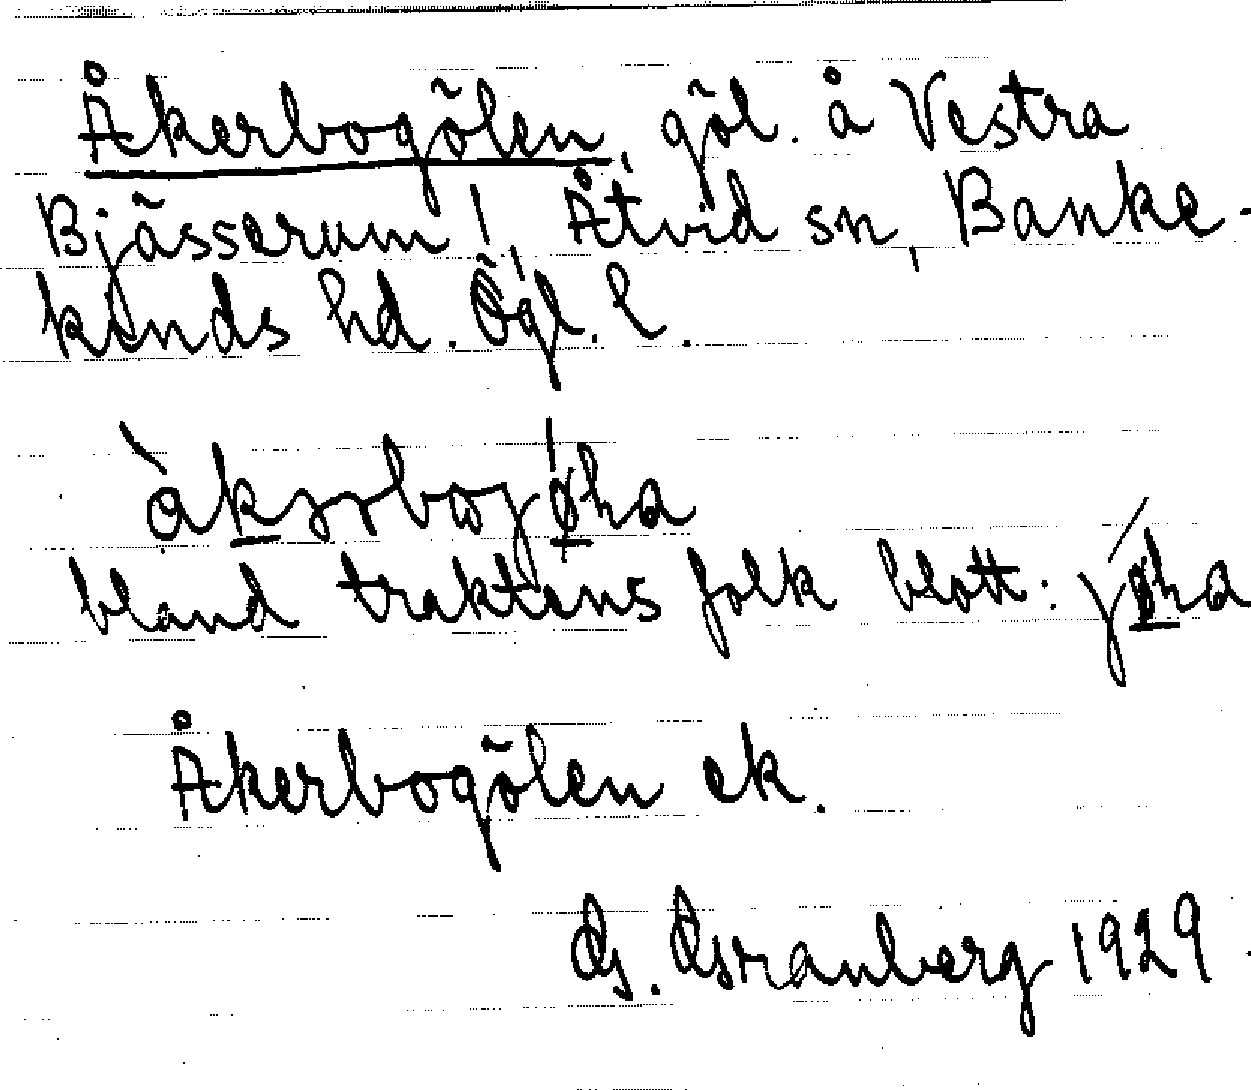 Åkerbogölen, göl. å Vestra
Bjässerum! Åtvid sn, Banke-
kinds hd. Ögl. l.
bland traktens folk blott:
Åkerbogölen ek.
G. Granberg 1929.